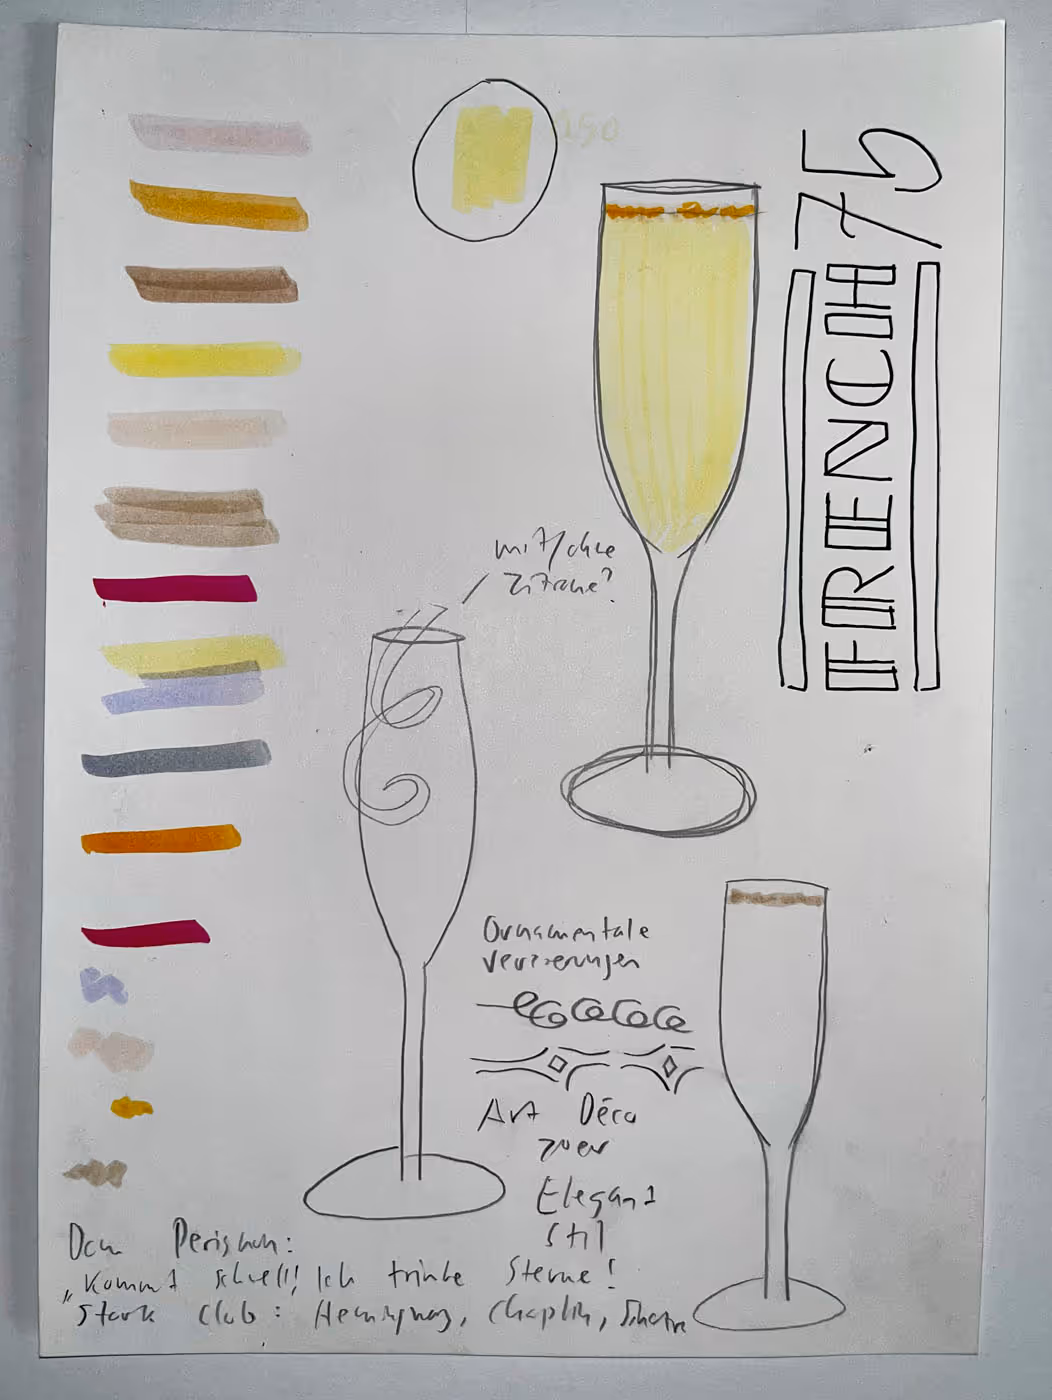 150
FRENCH 75
mit/ohne
Zitrone?
Ornamentale
Verzierungen
Art Déco
20er
Elegant
Stil
Dom Perignon:
„Kommt schnell! Ich trinke Sterne!
Stork Club: Hemingway, Chaplin, Sinatra